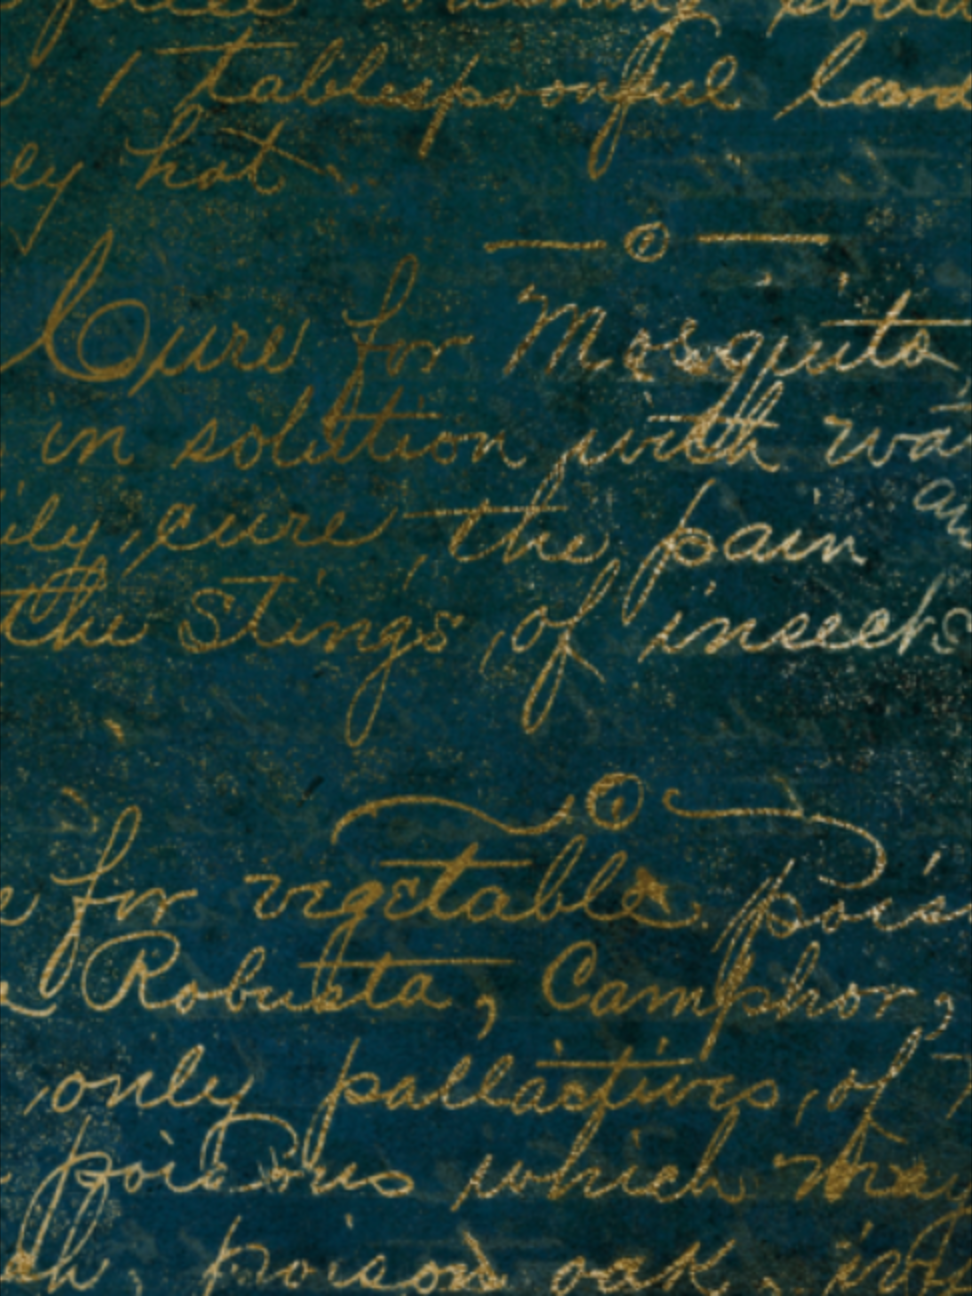 1 tablespoonful lard
hot
Cure for Mosquito
in solution with wat
ily, cure the pain an
the Stings, of insects
e for vegetable pois
Robusta, Camphor,
only palliatives, of
poisons which may
poison oak,